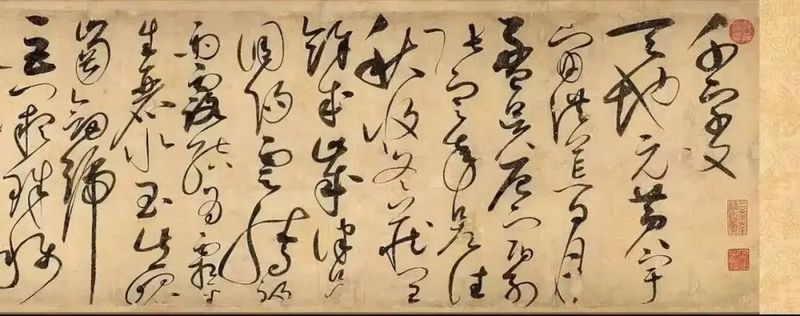 千字文
天地元黃宇
宙洪荒日月
盈昃辰宿列
張寒來暑往
秋收冬藏閏
餘成歲律呂
調陽雲騰致
雨露結為霜
生麗水玉出崑
崗劍號
巨闕珠稱